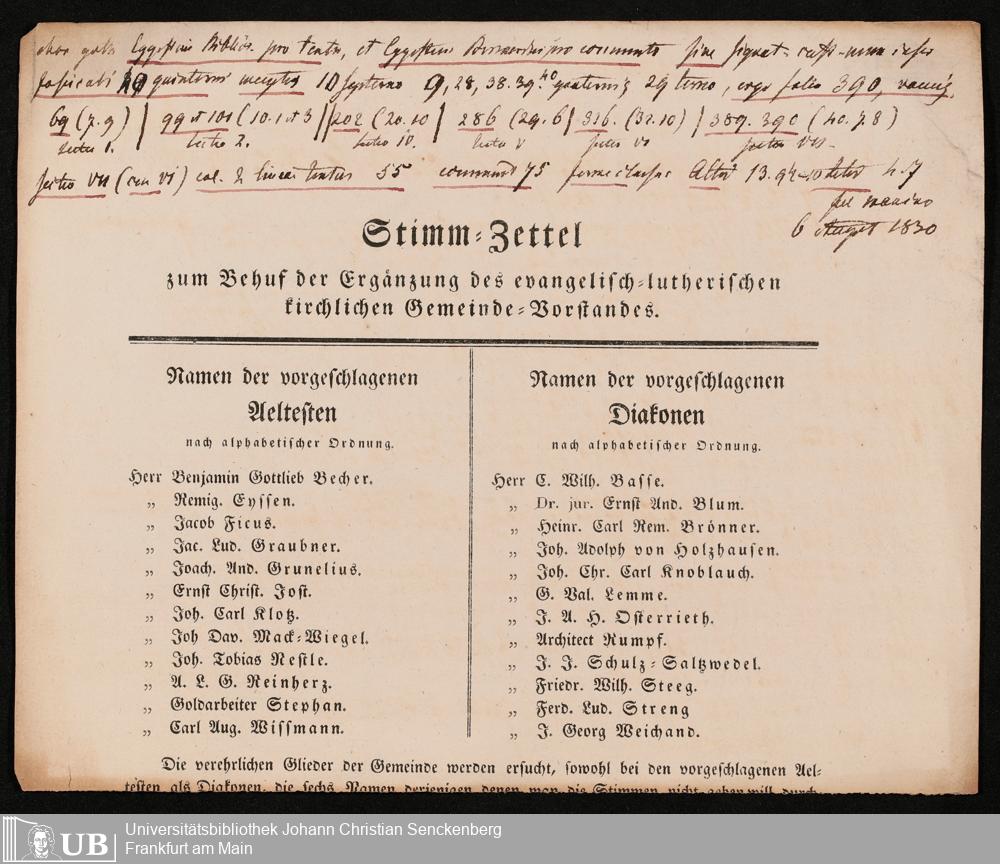 pro textu, et pro
10 9, 28, 38. 39. 40 29 terno, ergo folio 390,
69 (7. 9) 99 et 101 (10. 1 et 3 202 (20. 10 286 (29. 6 316. (32. 10) 389. 390 (40. 7. 8)
sectio 2. sectio IV.
sectio VII col. 2 55 75 13.
6 August 1830
Stimm-Zettel
zum Behuf der Ergänzung des evangelisch-lutherischen
kirchlichen Gemeinde-Vorstandes.
Namen der vorgeschlagenen
Aeltesten
nach alphabetischer Ordnung.
Herr Benjamin Gottlieb Becher.
„ Remig. Eyssen.
„ Jacob Ficus.
„ Jac. Lud. Graubner.
„ Joach. And. Grunelius.
„ Ernst Christ. Jost.
„ Joh. Carl Klotz.
„ Joh Dav. Mack-Wiegel.
„ Joh. Tobias Nestle.
„ A. L. G. Reinherz.
„ Goldarbeiter Stephan.
„ Carl Aug. Wissmann.
Namen der vorgeschlagenen
Diakonen
nach alphabetischer Ordnung.
Herr C. Wilh. Basse.
„ Dr. jur. Ernst And. Blum.
„ Heinr. Carl Rem. Brönner.
„ Joh. Adolph von Holzhausen.
„ Joh. Chr. Carl Knoblauch.
„ G. Val. Lemme.
„ J. A. H. Osterrieth.
„ Architect Rumpf.
„ J. J. Schulz-Saltzwedel.
„ Friedr. Wilh. Steeg.
„ Ferd. Lud. Streng
„ J. Georg Weichand.
Die verehrlichen Glieder der Gemeinde werden ersucht, sowohl bei den vorgeschlagenen Ael-
testen als Diakonen, die sechs Namen derjenigen denen man die Stimmen nicht geben will durch-
UB
Universitätsbibliothek Johann Christian Senckenberg
Frankfurt am Main